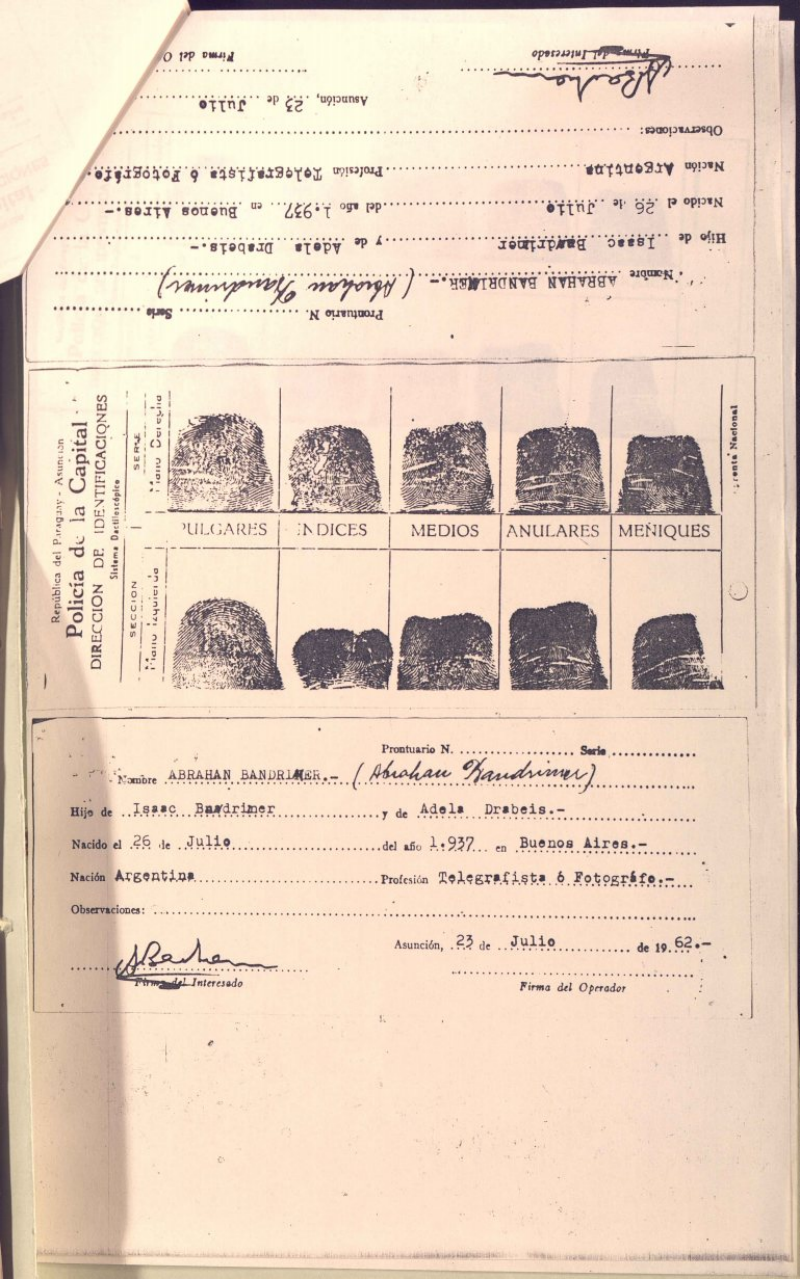 Firma del O
Firma del Interesado
Asunción, 23 de Julio
Observaciones:
Nación Argentina Profesión Telegrafista ó Fotográfo.-
Nacido el 26 de Julio del año 1.937 en Buenos Aires.-
Hijo de Isaac Bandrimer y de Adela Drabeis.-
Nombre ABRAHAN BANDRIMER.- (Abrahan Bandrimer)
Prontuario N. Serie
República del Paraguay - Asunción
Policía de la Capital
DIRECCION DE IDENTIFICACIONES
Sistema Dactiloscópico
SERIE
Mano Derecha
SECCION
Mano Izquierda
PULGARES INDICES MEDIOS ANULARES MEÑIQUES
renta Nacional
Prontuario N. Serie
Nombre ABRAHAN BANDRIMER.- (Abrahan Bandrimer)
Hijo de Isaac Bandrimer y de Adela Drabeis.-
Nacido el 26 de Julio del año 1.937 en Buenos Aires.-
Nación Argentina Profesión Telegrafista ó Fotográfo.-
Observaciones:
Asunción, 23 de Julio de 1962.-
Firma del Interesado
Firma del Operador